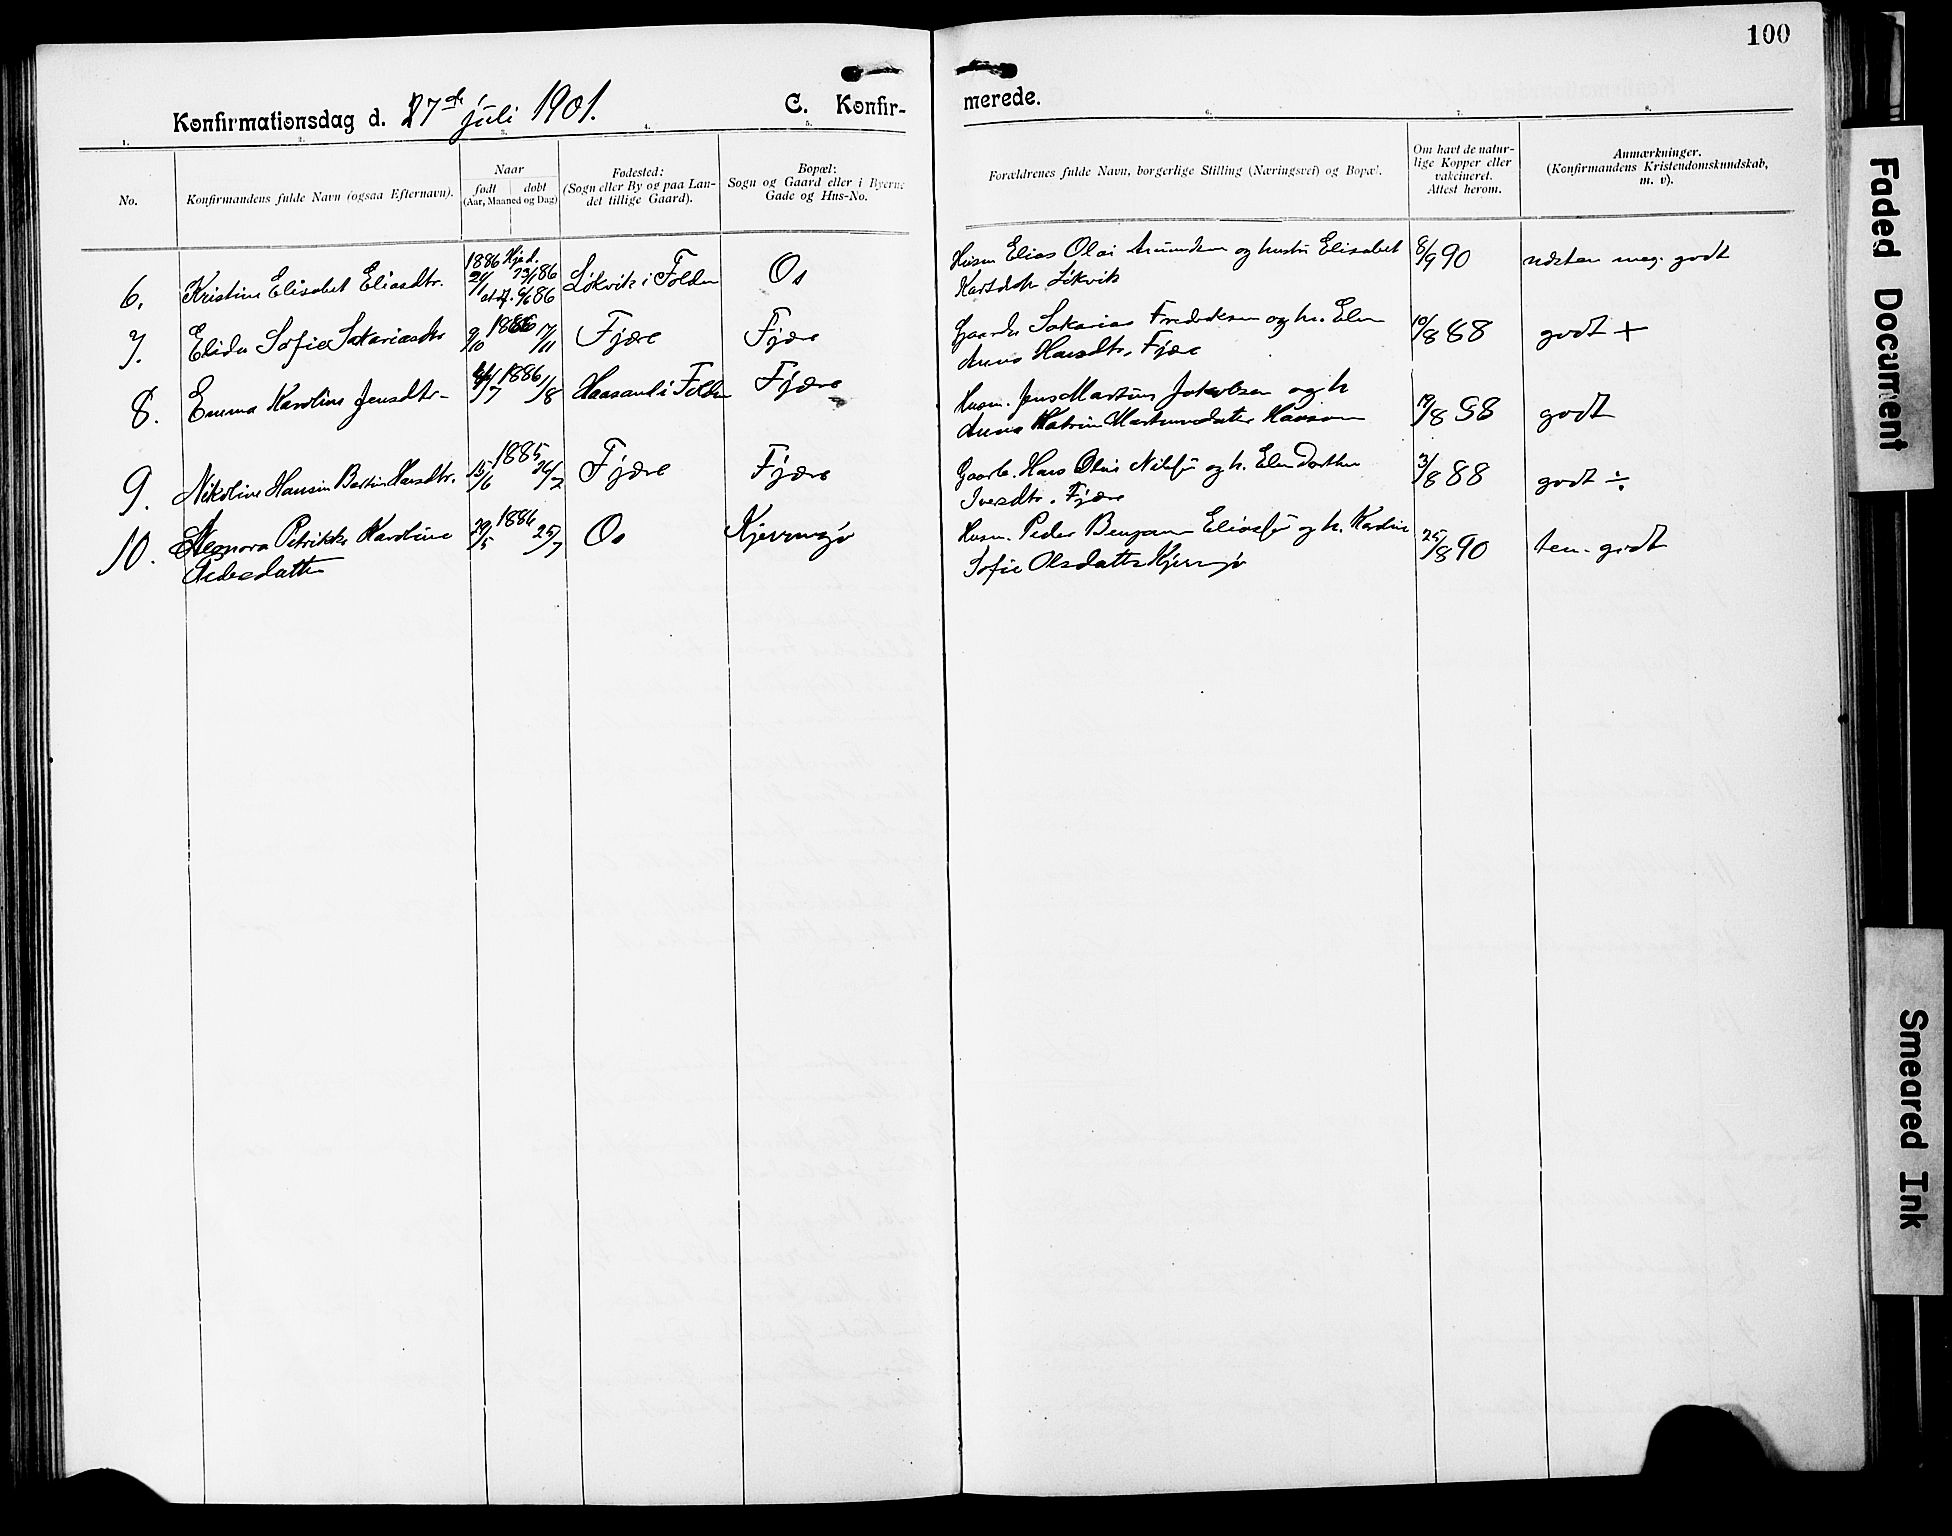 100
Konfirmationsdag d. 27de juli 1901.
C. Konfir-
merede.
1. 2. 3. 4. 5. 6. 7. 8.
No.
Konfirmandens fulde Navn (ogsaa Efternavn).
Naar
født døbt
(Aar, Maaned og Dag)
Fødested:
(Sogn eller By og paa Lan-
det tillige Gaard).
Bopæl:
Sogn og Gaard eller i Byerne
Gade og Hus-No.
Forældrenes fulde Navn, borgerlige Stilling (Næringsvei) og Bopæl.
Om havt de natur-
lige Kopper eller
vakcineret.
Attest herom.
Anmærkninger.
(Konfirmandens Kristendomskundskab,
m. v).
6. Kristine Elisabet Eliasdtr. 1886 24/1 Hjd. 23/1 86 Løkvik i Folden Os
6/6 86
Husm Elias Olai Amundsen og hustru Elisabet 8/9 90 næsten meg. godt
Løkvik
7. Elida Sofie Sakariasdtr 9/10 1886 17/11 Fjære Fjære
Sakarias Fredriksen og h. Elen 10/8 88 godt +
Anna Hansdtr. Fjære
8. Emma Karoline Jensdtr. /7 1886 1/8 i Folden Fjære
Husm. Jens Martin Jakobsen og h 19/8 88 godt
Anna Katrine
9. Nikoline Hansine Hansdtr. 15/6 1885 26/7 Fjære Fjære
Gaardb. Hans Nilsen og h. Elen Dorthea 3/8 88 godt ÷
Iversdtr. Fjære
10. Eleonora Petrikke Karoline 29/5 1886 25/7 Os Kjerringø
Pedersdatter
Husm. Peder Benjamin Eliasen og h. Karoline 25/8 90 tem. godt
Sofie Olsdatter Kjerringø
Faded Document
Smeared Ink